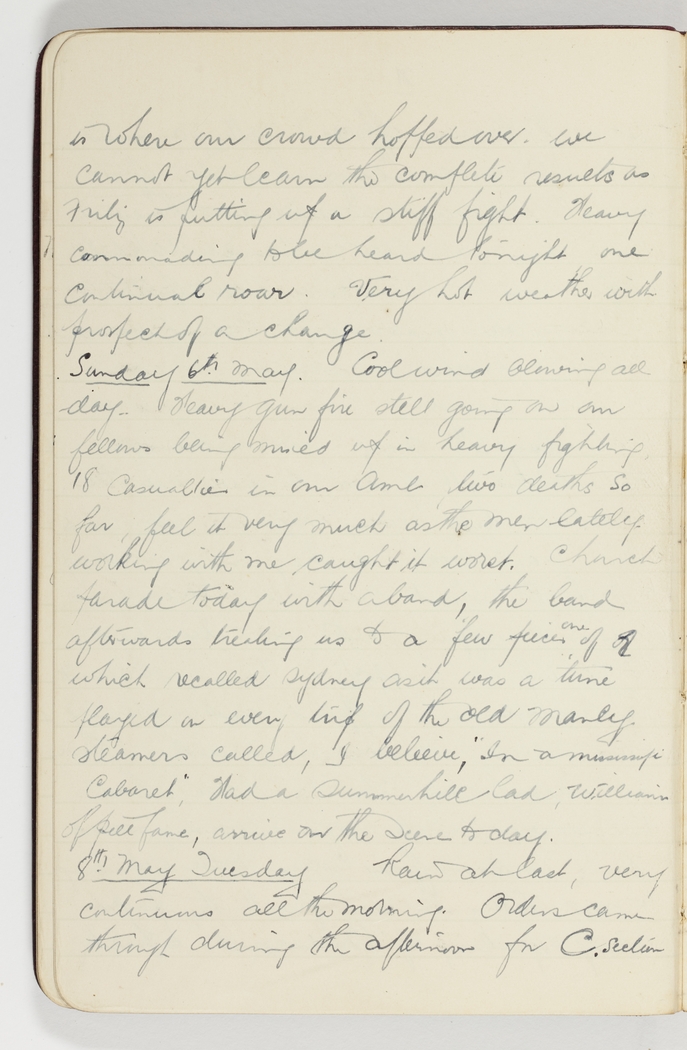 is where our crowd hopped over. we
cannot yet learn the complete results as
Fritz is putting up a stiff fight. Heavy
cannonading to be heard tonight one
continual roar. Very hot weather with
prospect of a change.
Sunday 6th May. Cool wind blowing all
day. Heavy gun fire still going on our
fellows being mixed up in heavy fighting.
18 Casualties in our Amb two deaths so
far, feel it very much as the men lately
working with me, caught it worst. Church
parade today with a band, the band
afterwards treating us to a few pieces one of
which recalled Sydney as it was a tune
played on every trip of the old Manly
steamers called, I believe, "In a mississipi
Cabaret", Had a Summerhill lad, Williams
of pill fame, arrive on the scene to day.
8th May Tuesday Rain at last, very
continuous all the morning. Orders came
through during the afternoon for C. section